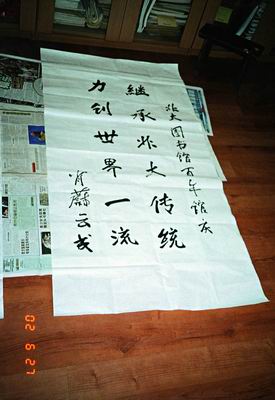 北大图书馆百年馆庆
继承北大传统
力创世界一流
肖蔚云书
02 6 27